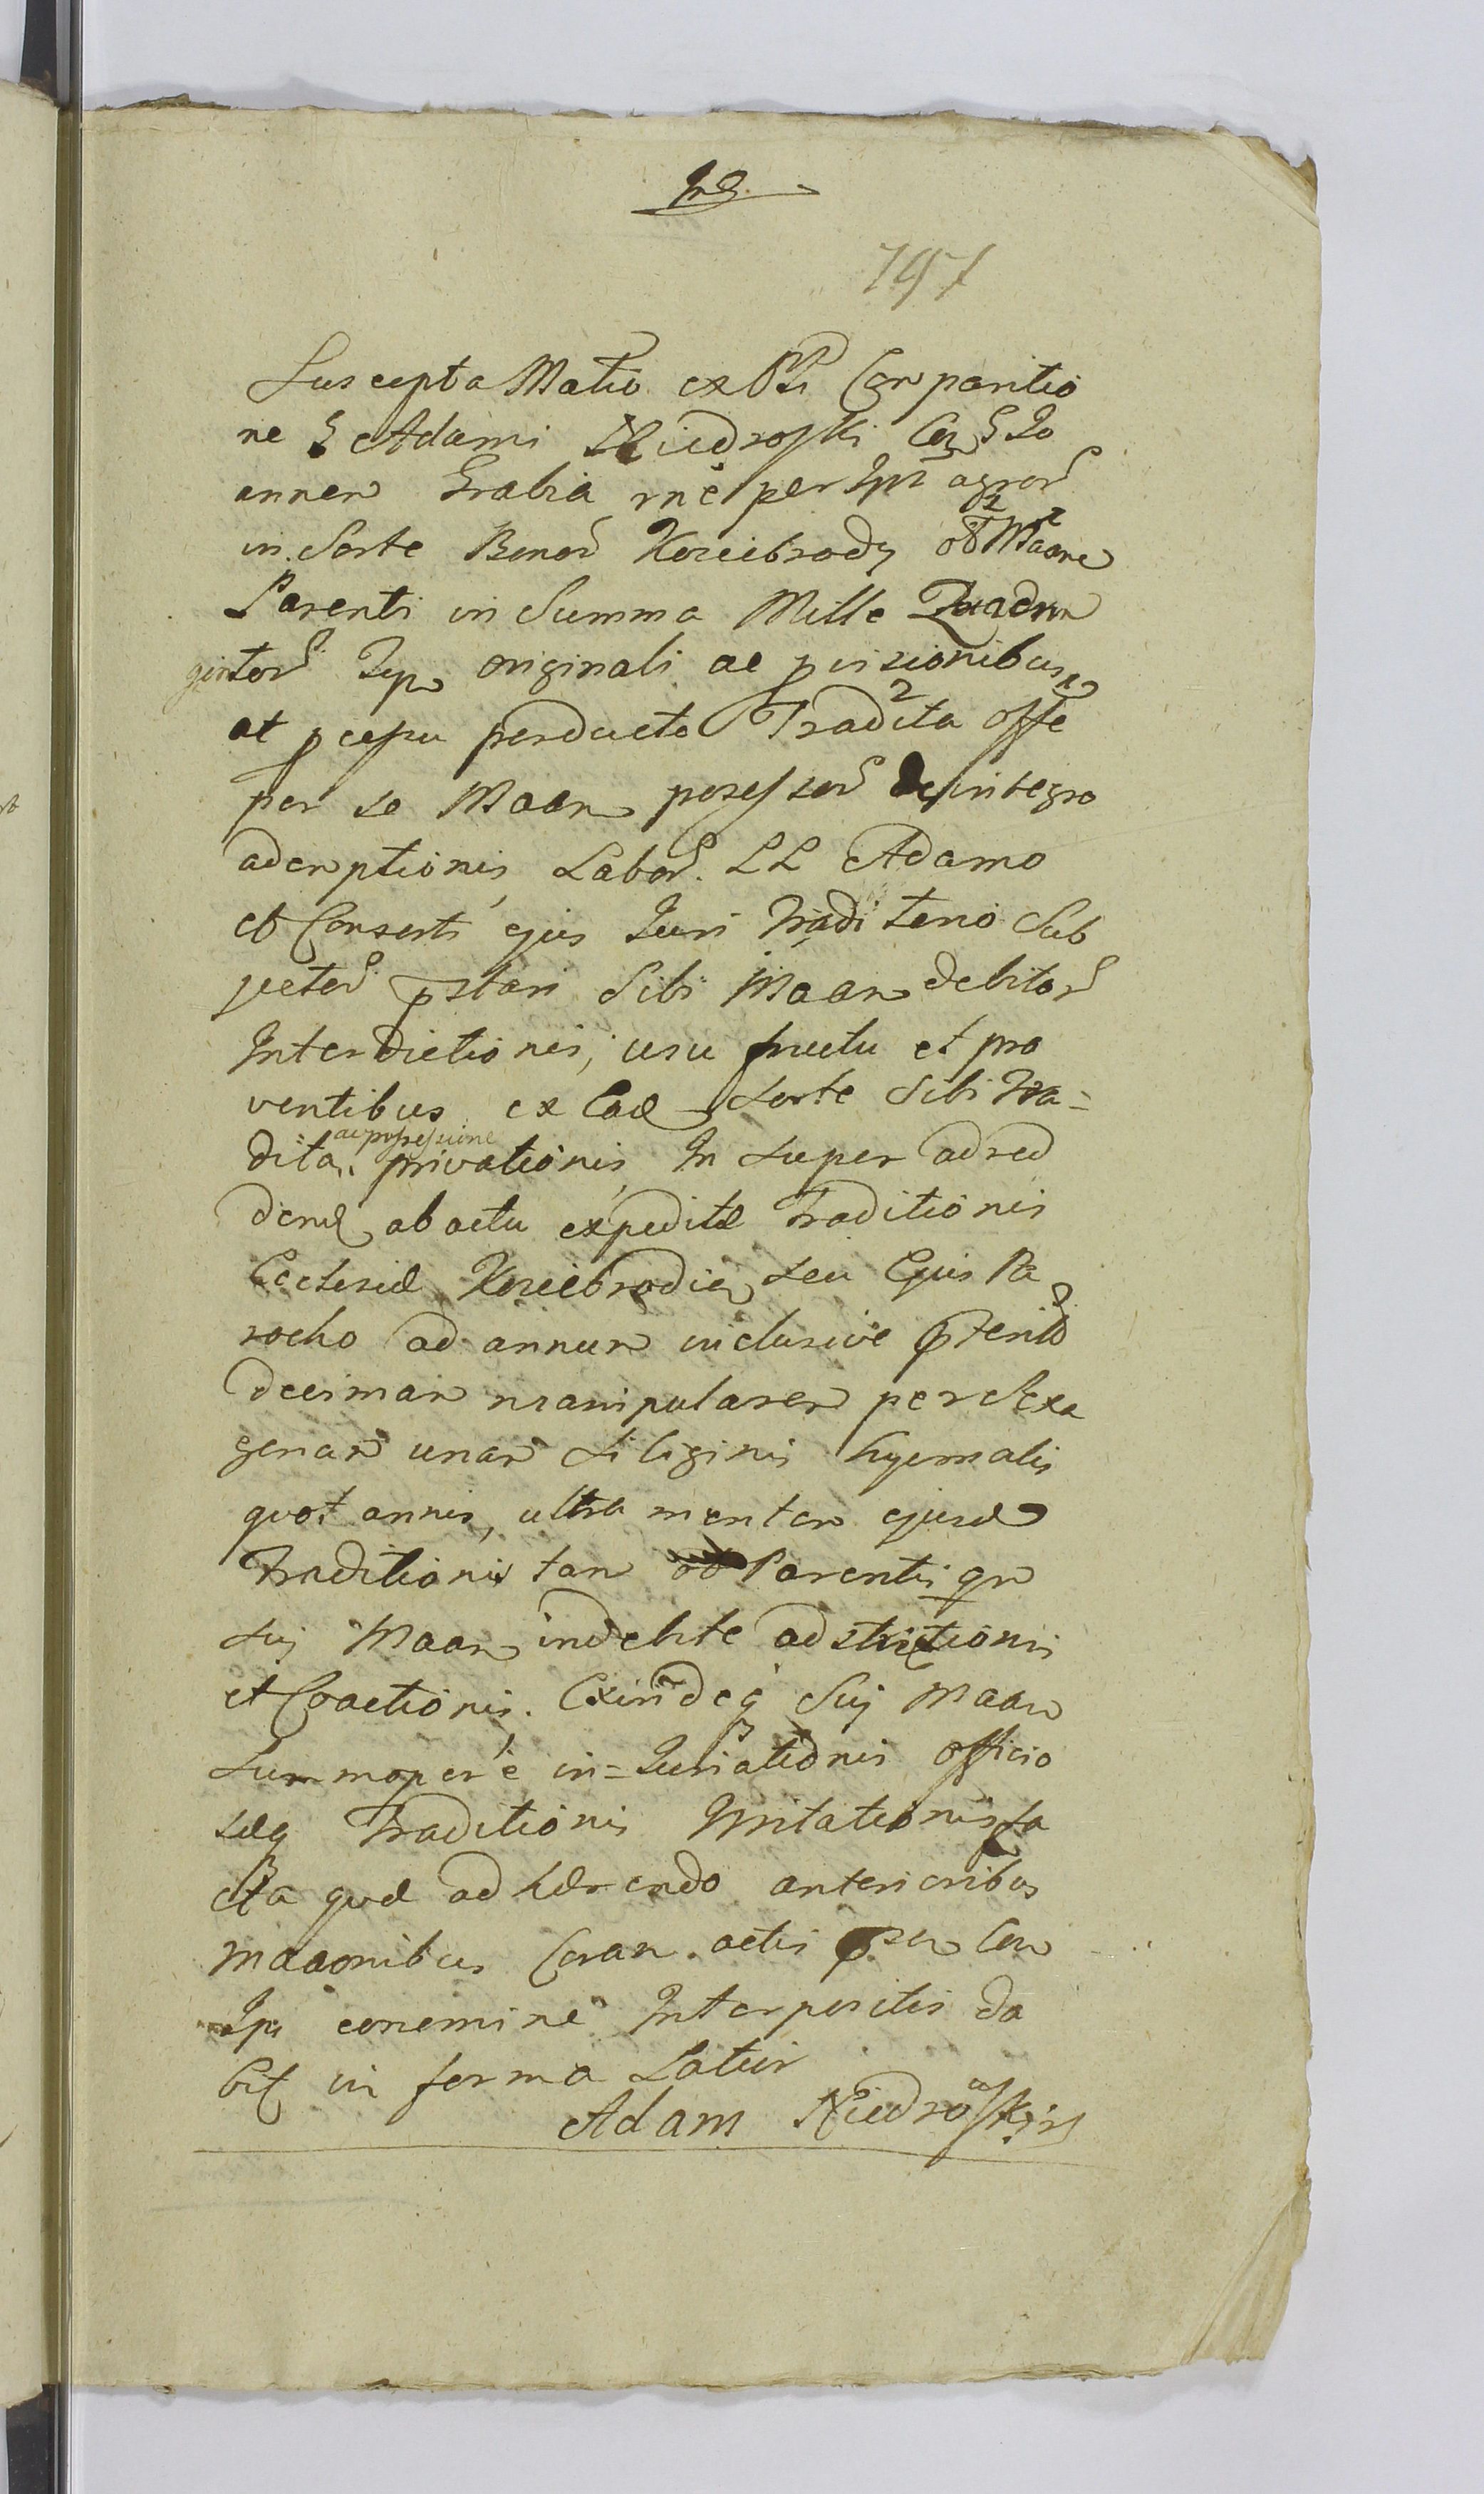 797
Suscepta Matio ex Comparitio
ne G Adami Niedroski Con G Jo
annem Grabia rne per agror
in Sorte Bonor Kozieibrody ob Maane
Parenti in Summa Mille Quadrin
gintor originali ac pvisionibus
at pcepu perducto Tradita offe
per se Maan posessor de integro
ademptionis Labor. LL Adamo
et Consorti ejus Juri Tradi terio Sub
jector pstari Sibi Maan debitor
Interdictionis, usu fructu et pro
ventibus ex Ead Sorte Sibi tra=
dita, ac possessione privationis, In super ad red
dend, ab actu expeditæ Traditionis
Ecclesiæ Koziebrodien, seu Ejus Pa
rocho ad annum inclusive pterit
decimam manipularem per Sexa
genam unam Siliginis hyemalis
quot annis, ultra mentem ejusd
Traditionis tam Parentis qm
sui Maan indebite adstrictionis
et Coactionis. Exindeq Sui Maan
Summoperè in=Juriationis officio
sæq Traditionis Irritationis fa
cta quæ adhærendo anterioribus
maaonibus Coram actis Con
Ipi eonemine Interpositis da
bit in forma Latior
Adam Niedroski